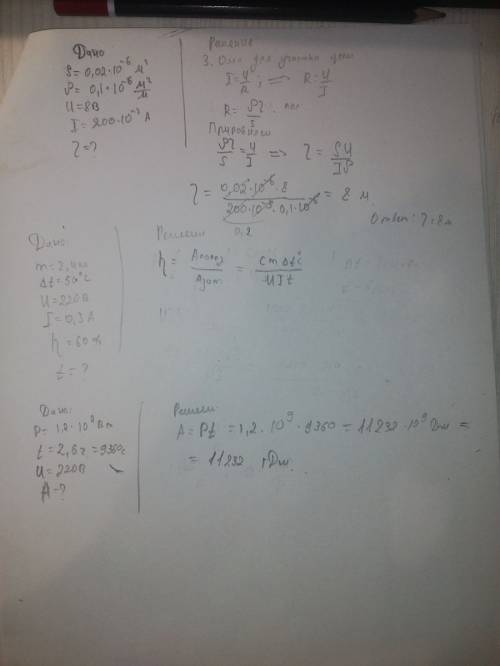 Дано
S = 0,02·10⁻⁶ м²
ρ = 0,1·10⁻⁶ м²/м
U = 8В
I = 200·10⁻³ А
l = ?
Решение
З. Ома для участка цепи
I = U/R ; => R = U/I
R = ρl/S
Приравняем
ρl/S = U/I => l = SU/Iρ
l = 0,02·10⁻⁶·8 / 200·10⁻³·0,1·10⁻⁶ = 8 м.
0,2
Ответ: l = 8м
Дано:
m =
Δt = 50°C
U = 220В
I = 0,3 А
η = 60%
t = ?
Решение
η = Aполез/Aзат = cmΔt°/UIt
Дано:
P = 1,2·10⁹ Вт
t = 2,6ч = 9360с
U = 220В
A - ?
Решение
A = Pt = 1,2·10⁹·9360 = 11232·10⁹ Дж =
= 11232 гДж.